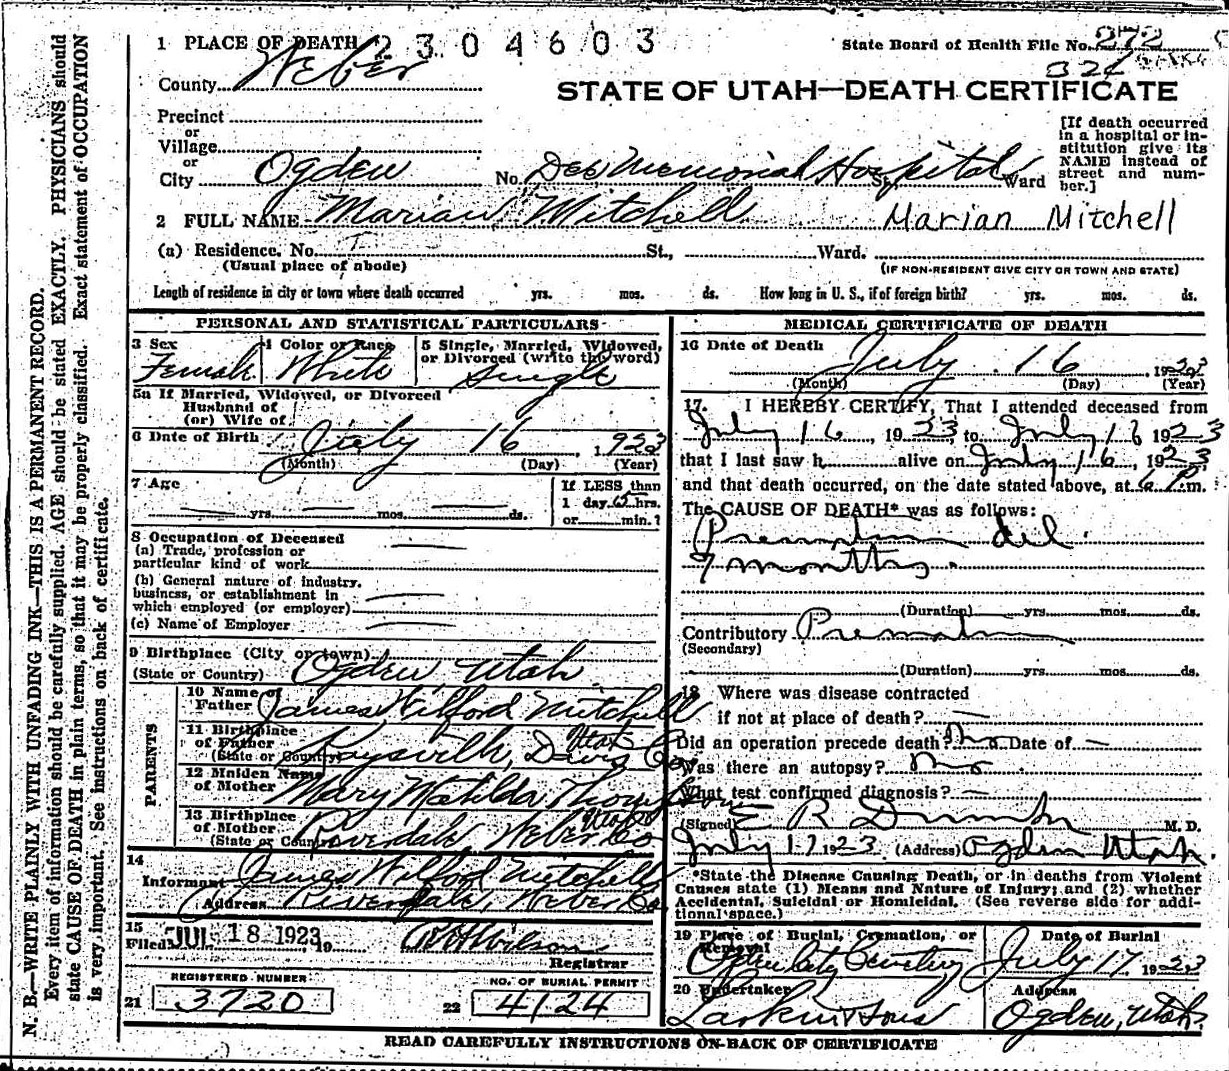 1 PLACE OF DEATH 2304603
State Board of Health File No. 272
County Weber
STATE OF UTAH—DEATH CERTIFICATE
Precinct
or
Village
or
City Ogden No. Dee Memorial Hospital St. Ward
[If death occurred
in a hospital or in-
stitution give its
NAME instead of
street and num-
ber.]
2 FULL NAME Marian Mitchell Marian Mitchell
(a) Residence. No. St., Ward.
(Usual place of abode) (IF NON-RESIDENT GIVE CITY OR TOWN AND STATE)
Length of residence in city or town where death occurred yrs. mos. ds. How long in U. S., if of foreign birth? yrs. mos. ds.
PERSONAL AND STATISTICAL PARTICULARS
3 Sex
Female
4 Color or Race
White
5 Single, Married, Widowed,
or Divorced (write the word)
Single
5a If Married, Widowed, or Divorced
Husband of
(or) Wife of
6 Date of Birth July 16, 1923
(Month) (Day) (Year)
7 Age
yrs. mos. ds.
If LESS than
1 day 5 hrs.
or min.?
8 Occupation of Deceased
(a) Trade, profession or
particular kind of work
(b) General nature of industry,
business, or establishment in
which employed (or employer)
(c) Name of Employer
9 Birthplace (City or town)
(State or Country) Ogden Utah
PARENTS
10 Name of
Father James Wilford Mitchell
11 Birthplace
of Father
(State or Country) Kaysville, Davis Co. Utah
12 Maiden Name
of Mother Mary Matilda Thompson
13 Birthplace
of Mother
(State or Country) Riverdale, Weber Co Utah
14
Informant James Wilford Mitchell
Address Riverdale, Weber Co.
15
Filed JUL 18 1923, 19
Registrar
REGISTERED NUMBER
21 3720
NO. OF BURIAL PERMIT
22 4124
MEDICAL CERTIFICATE OF DEATH
16 Date of Death July 16, 1923
(Month) (Day) (Year)
17. I HEREBY CERTIFY, That I attended deceased from
July 16, 1923 to July 16 1923
that I last saw h alive on July 16, 1923
and that death occurred, on the date stated above, at 6 P.m.
The CAUSE OF DEATH* was as follows:
Premature del.
7 months.
(Duration) yrs. mos. ds.
Contributory Premature
(Secondary)
(Duration) yrs. mos. ds.
18 Where was disease contracted
if not at place of death? —
Did an operation precede death? No Date of —
Was there an autopsy? No
What test confirmed diagnosis? —
(Signed) E R Dumke M. D.
July 17 1923 (Address) Ogden Utah.
*State the Disease Causing Death, or in deaths from Violent
Causes state (1) Means and Nature of Injury; and (2) whether
Accidental, Suicidal or Homicidal. (See reverse side for addi-
tional space.)
19 Place of Burial, Cremation, or
Removal
Ogden City Cemetery
Date of Burial
July 17. 1923
20 Undertaker
Larkin & Sons
Address
Ogden, Utah.
READ CAREFULLY INSTRUCTIONS ON BACK OF CERTIFICATE
N. B.—WRITE PLAINLY WITH UNFADING INK—THIS IS A PERMANENT RECORD.
Every item of information should be carefully supplied. AGE should be stated EXACTLY. PHYSICIANS should
state CAUSE OF DEATH in plain terms, so that it may be properly classified. Exact statement of OCCUPATION
is very important. See instructions on back of certificate.